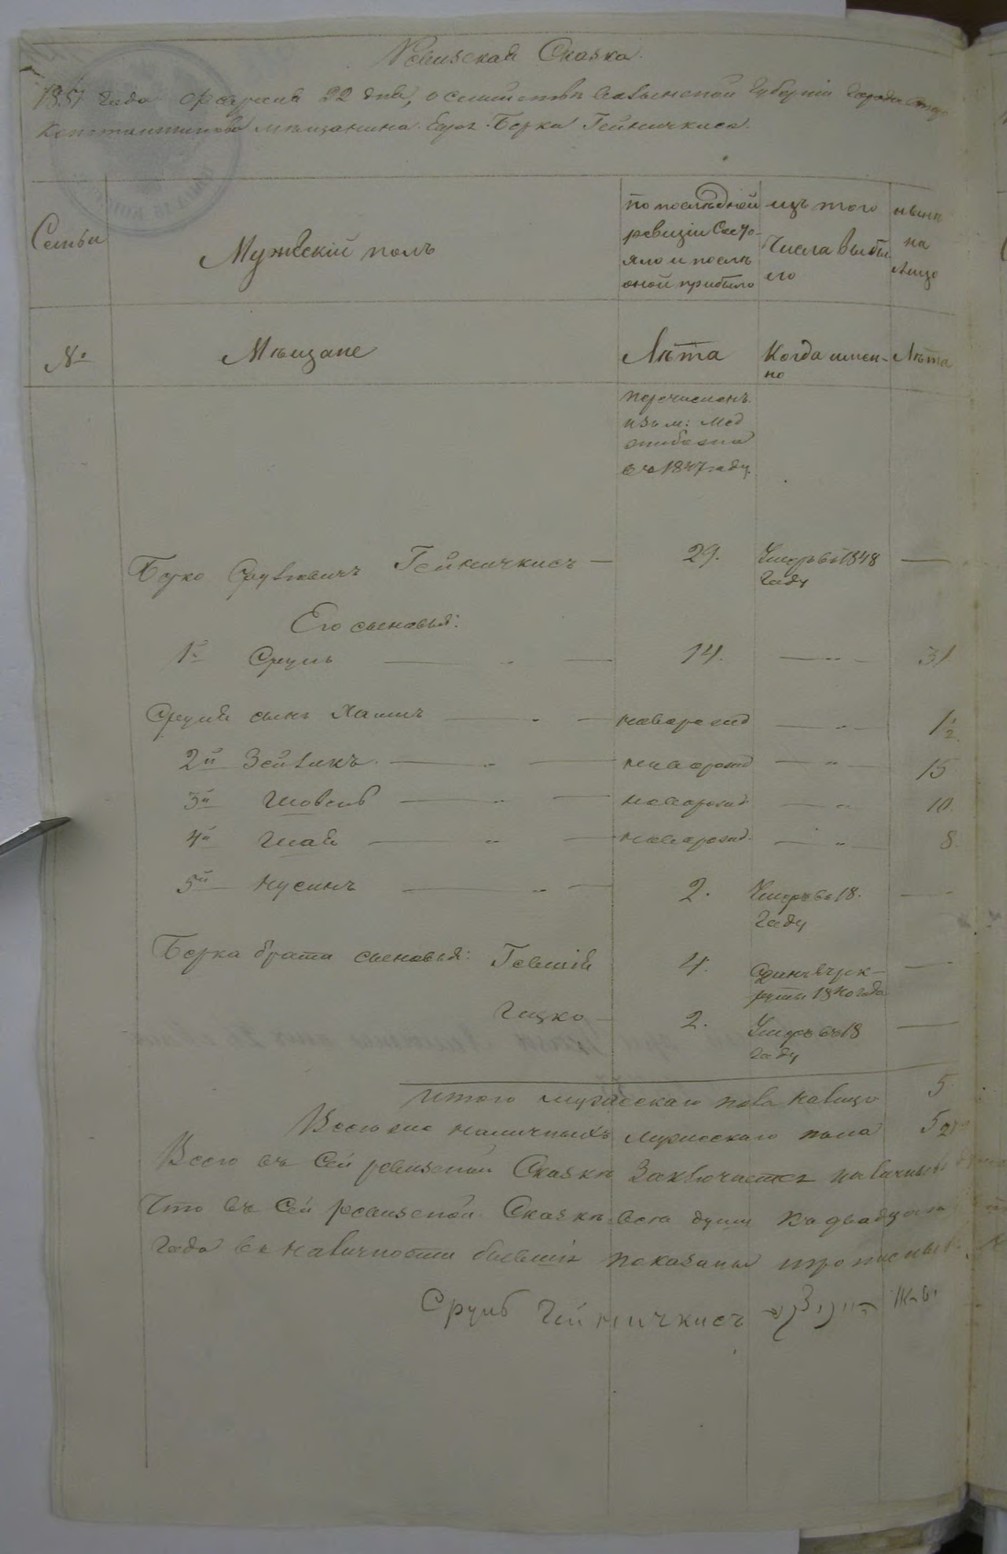 Ревизская Сказка.
1851 года февраля 22 дня, о семействѣ Волынской Губернiи города Старо
Константинова мѣщанина Евр. Берка Гейничкиса.
Семьи
Мужескiй полъ
По послѣдней ревизiи состояло и послѣ оной прибыло
Изъ того числа выбыло
Нынѣ на лицо
№
Мѣщане
Лѣта
Когда имен-
но
Лѣта
перечисленъ
изъ м: Мед
въ 1847 году.
Берко Срулевичъ Гейничкисъ — 29. Умеръ въ 1848 —
году
Его сыновья:
1й Сруль — " — 14. — " — 31
Сруля сынъ Хаимъ — " — новорожд — " — 1½
2й Зейликъ — " — новорожд — " — 15
3й Шовель — " — новорожд — " — 10.
4й Шая — " — новорожд. — " — 8.
5й Нусинъ — " — 2. Умеръ въ 18. —
году
Берка брата сыновья: Гевшiя 4. Здинъ въ рек- —
руты 1840 года
Гицко — 2. Умеръ въ 18 —
году
Итого мужескаго пола на лицо 5
Всего же наличныхъ мужескаго пола 5
Всего въ сей ревизской Сказкѣ заключается наличныхъ
Что въ сей ревизской Сказкѣ всѣ души
года въ наличности бывшiя показаны
Сруль Гейничкисъ